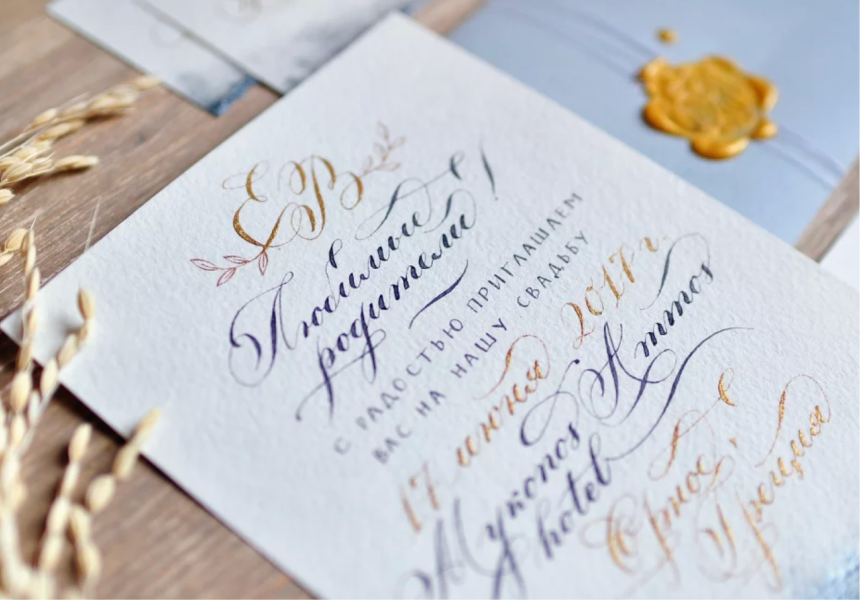 ЕВ
Любимые
родители!
С РАДОСТЬЮ ПРИГЛАШАЕМ
ВАС НА НАШУ СВАДЬБУ
17 июня 2017 г.
Mykonos Ammos
hotel
Орнос,
Греция